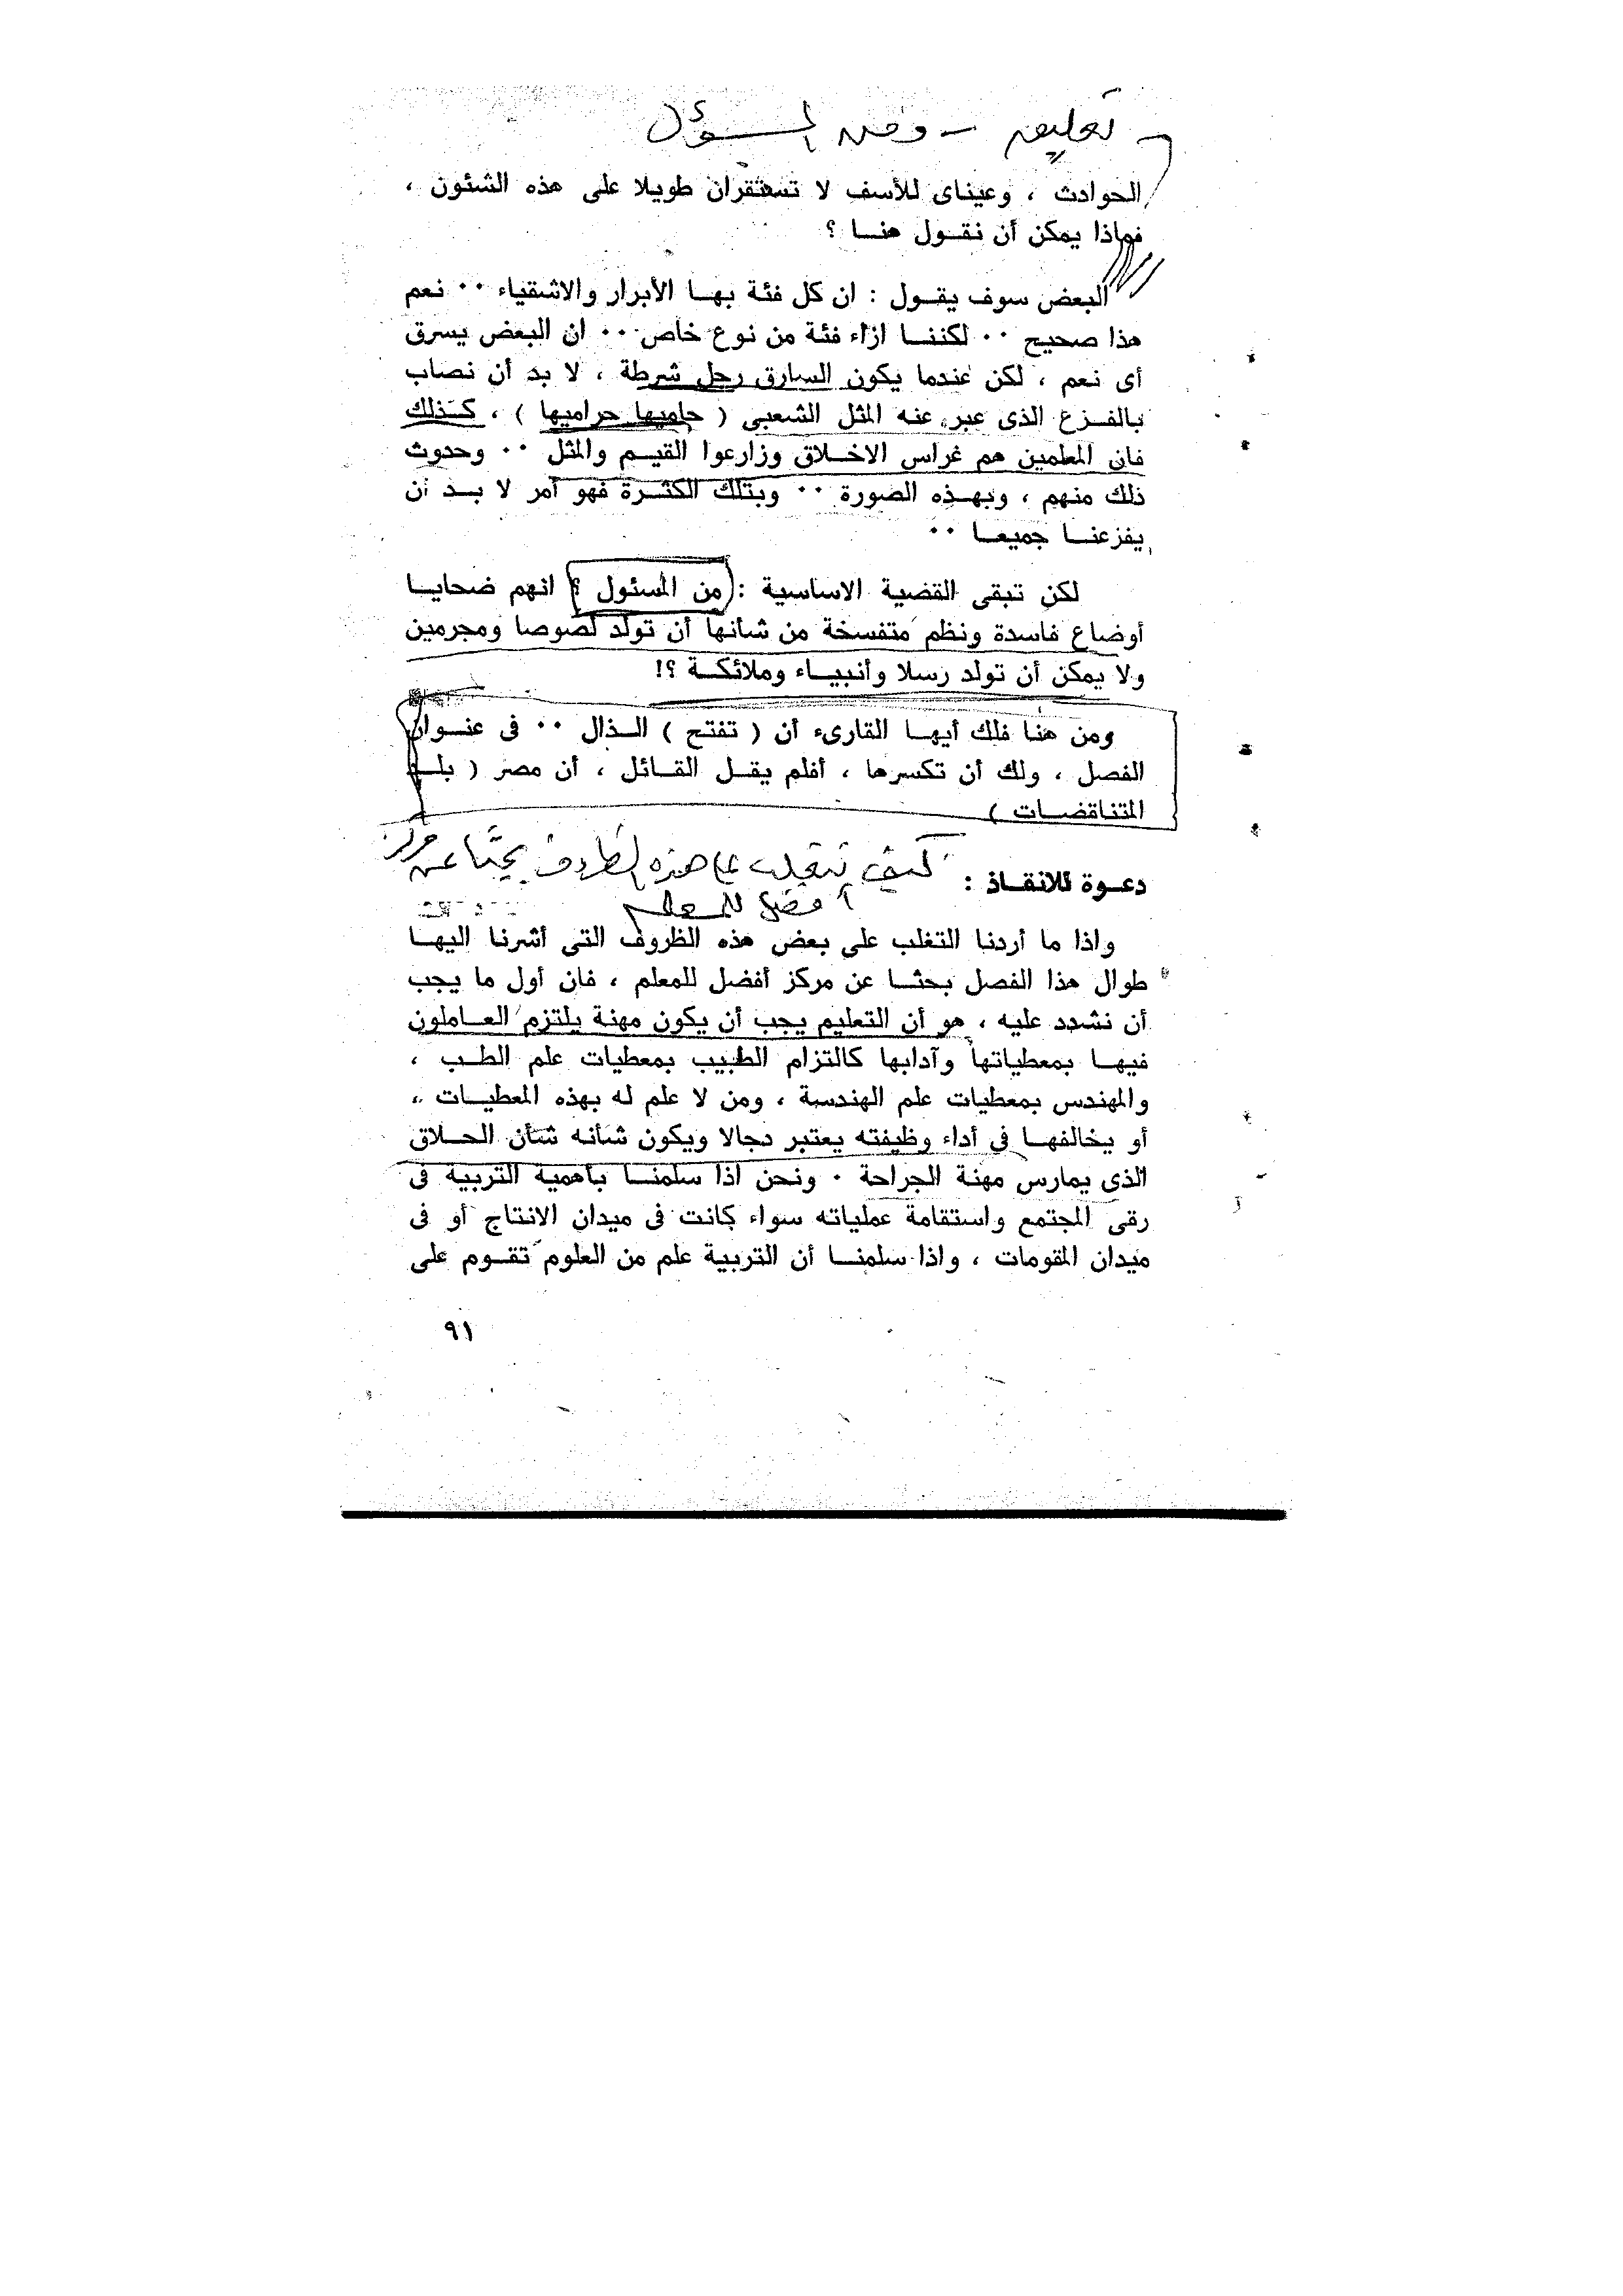 تعليق — ومن المسؤل
الحوادث ، وعيناى للأسف لا تستقران طويلا على هذه الشئون ،
فماذا يمكن أن نقول هنا ؟
البعض سوف يقول : ان كل فئة بها الأبرار والاشقياء ٠٠ نعم
هذا صحيح ٠٠ لكننا ازاء فئة من نوع خاص ٠٠ ان البعض يسرق
أى نعم ، لكن عندما يكون السارق رجل شرطة ، لا بد أن نصاب
بالفزع الذى عبر عنه المثل الشعبى ( حاميها حراميها ) ، كذلك
فان المعلمين هم غراس الاخلاق وزارعوا القيم والمثل ٠٠ وحدوث
ذلك منهم ، وبهذه الصورة ٠٠ وبتلك الكثرة فهو أمر لا بد أن
يفزعنا جميعا ٠٠
لكن تبقى القضية الاساسية : من المسئول ؟ انهم ضحايا
أوضاع فاسدة ونظم متفسخة من شأنها أن تولد لصوصا ومجرمين
ولا يمكن أن تولد رسلا وأنبياء وملائكة ؟!
ومن هنا فلك أيها القارىء أن ( تفتح ) الذال ٠٠ فى عنوان
الفصل ، ولك أن تكسرها ، أفلم يقل القائل ، أن مصر ( بلد
المتناقضات )
كيف نتغلب على هذه الظروف بحثا عن مركز
أفضل للمعلم
دعوة للانقاذ :
واذا ما أردنا التغلب على بعض هذه الظروف التى أشرنا اليها
طوال هذا الفصل بحثا عن مركز أفضل للمعلم ، فان أول ما يجب
أن نشدد عليه ، هو أن التعليم يجب أن يكون مهنة يلتزم العاملون
فيها بمعطياتها وآدابها كالتزام الطبيب بمعطيات علم الطب ،
والمهندس بمعطيات علم الهندسة ، ومن لا علم له بهذه المعطيات ،،
أو يخالفها فى أداء وظيفته يعتبر دجالا ويكون شأنه شأن الحلاق
الذى يمارس مهنة الجراحة ٠ ونحن اذا سلمنا بأهمية التربية فى
رقى المجتمع واستقامة عملياته سواء كانت فى ميدان الانتاج أو فى
ميدان المقومات ، واذا سلمنا أن التربية علم من العلوم تقوم على
٩١